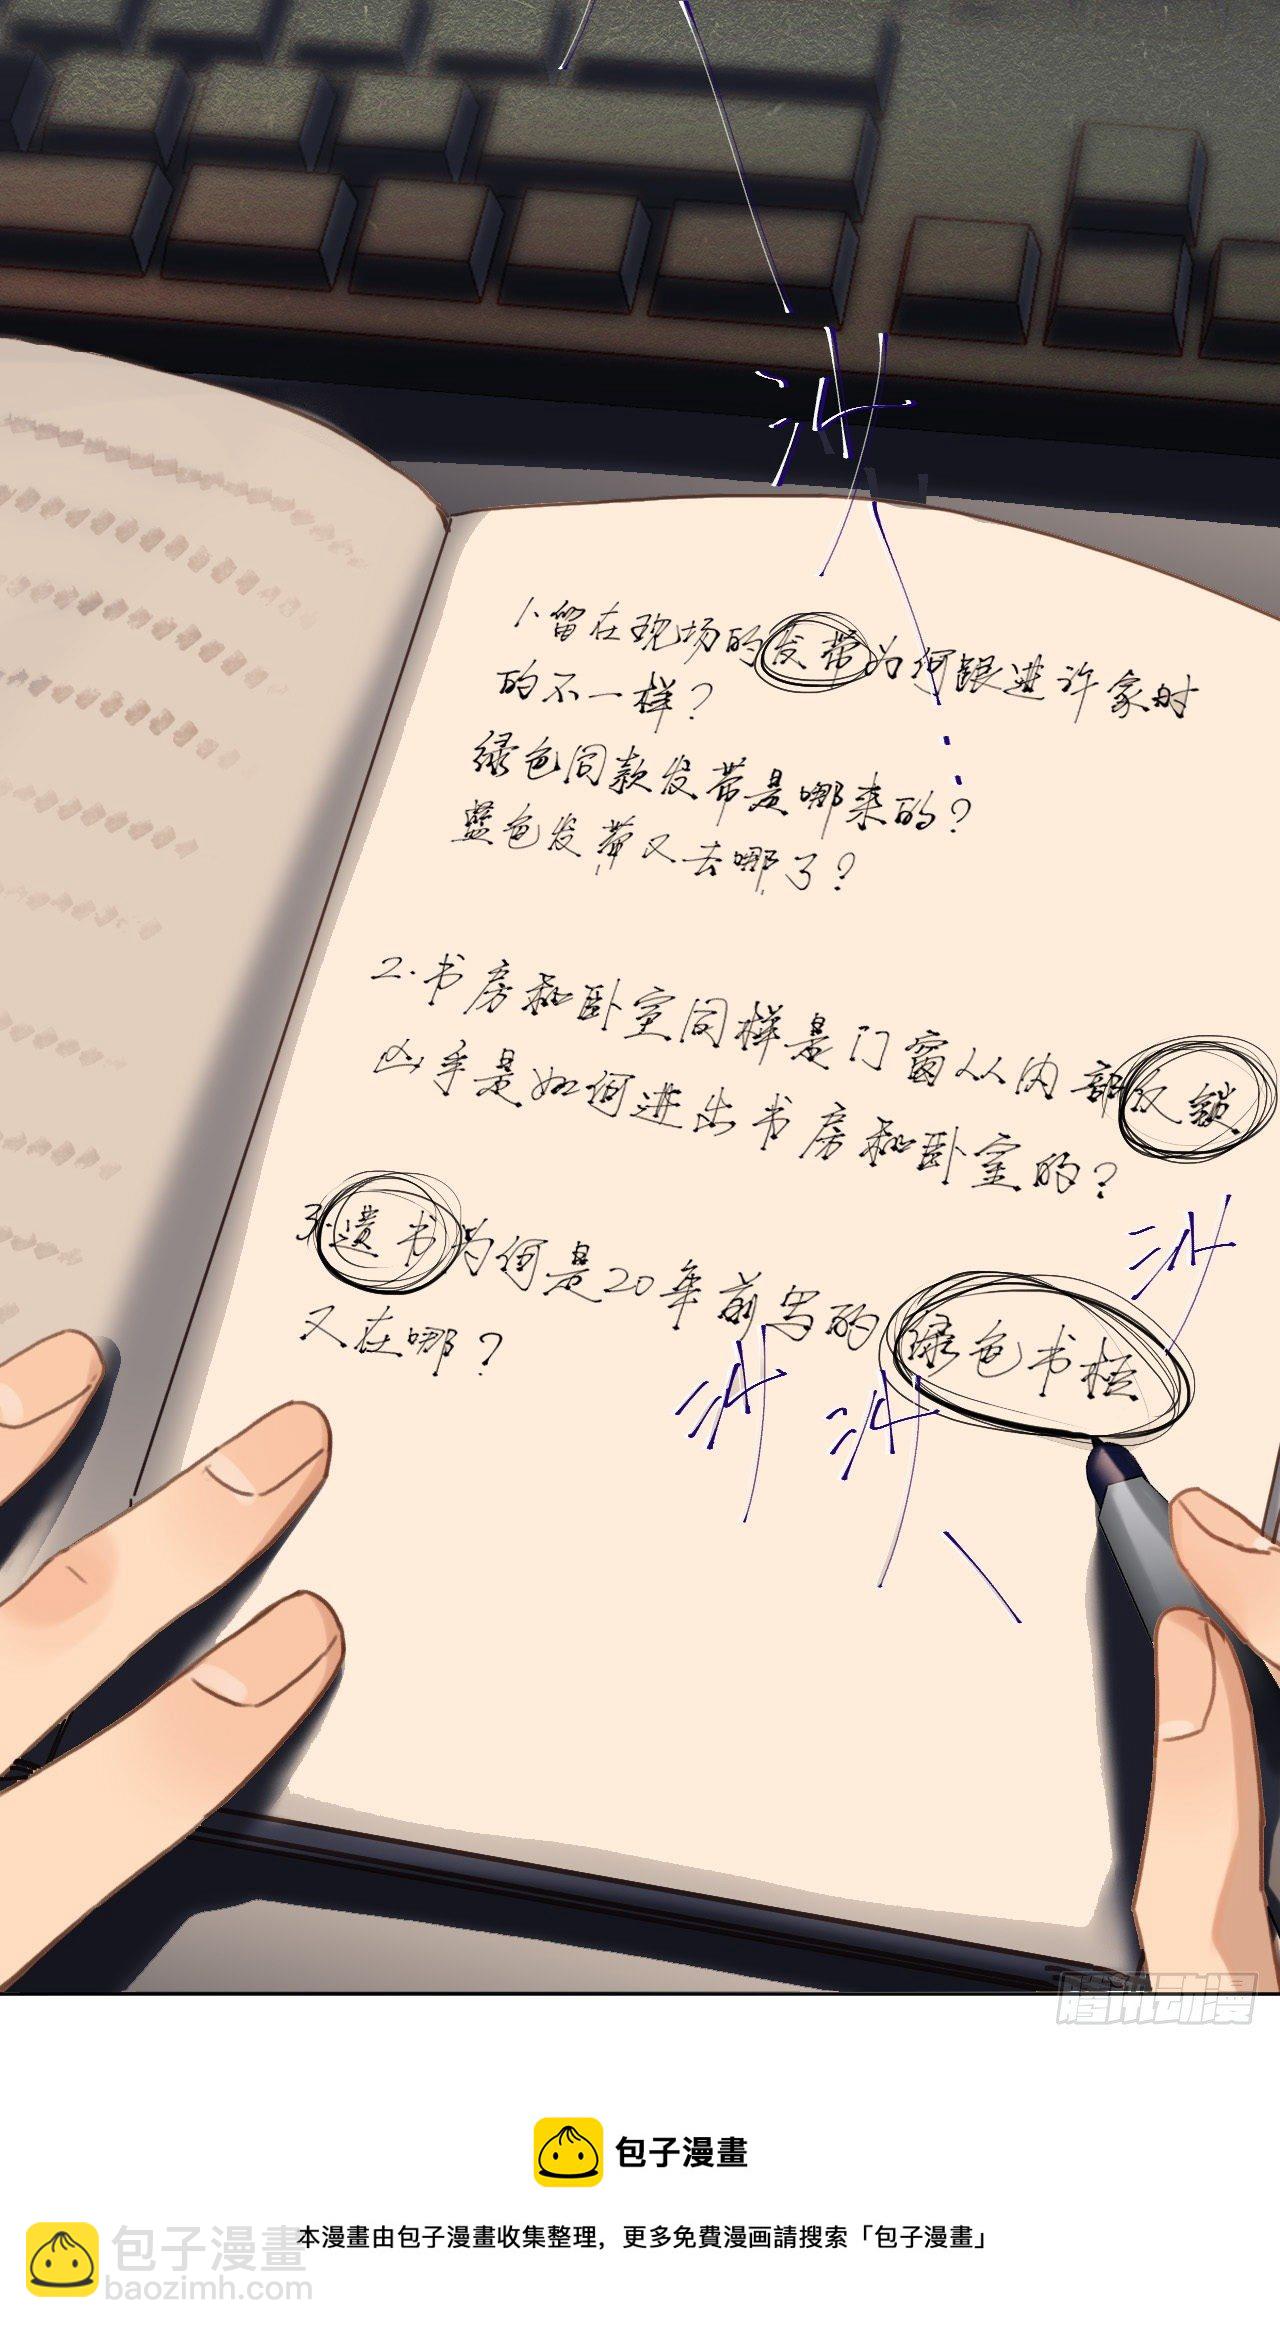 沙
1.留在现场的发带为何跟进许家时
的不一样？
绿色同款发带是哪来的？
蓝色发带又去哪了？
2.书房和卧室同样是门窗从内部反锁
凶手是如何进出书房和卧室的？
3.遗书为何是20年前写的 绿色书桓
又在哪？
沙
沙
沙
腾讯动漫
包子漫畫
本漫畫由包子漫畫收集整理，更多免費漫画請搜索「包子漫畫」
包子漫畫
baozimh.com